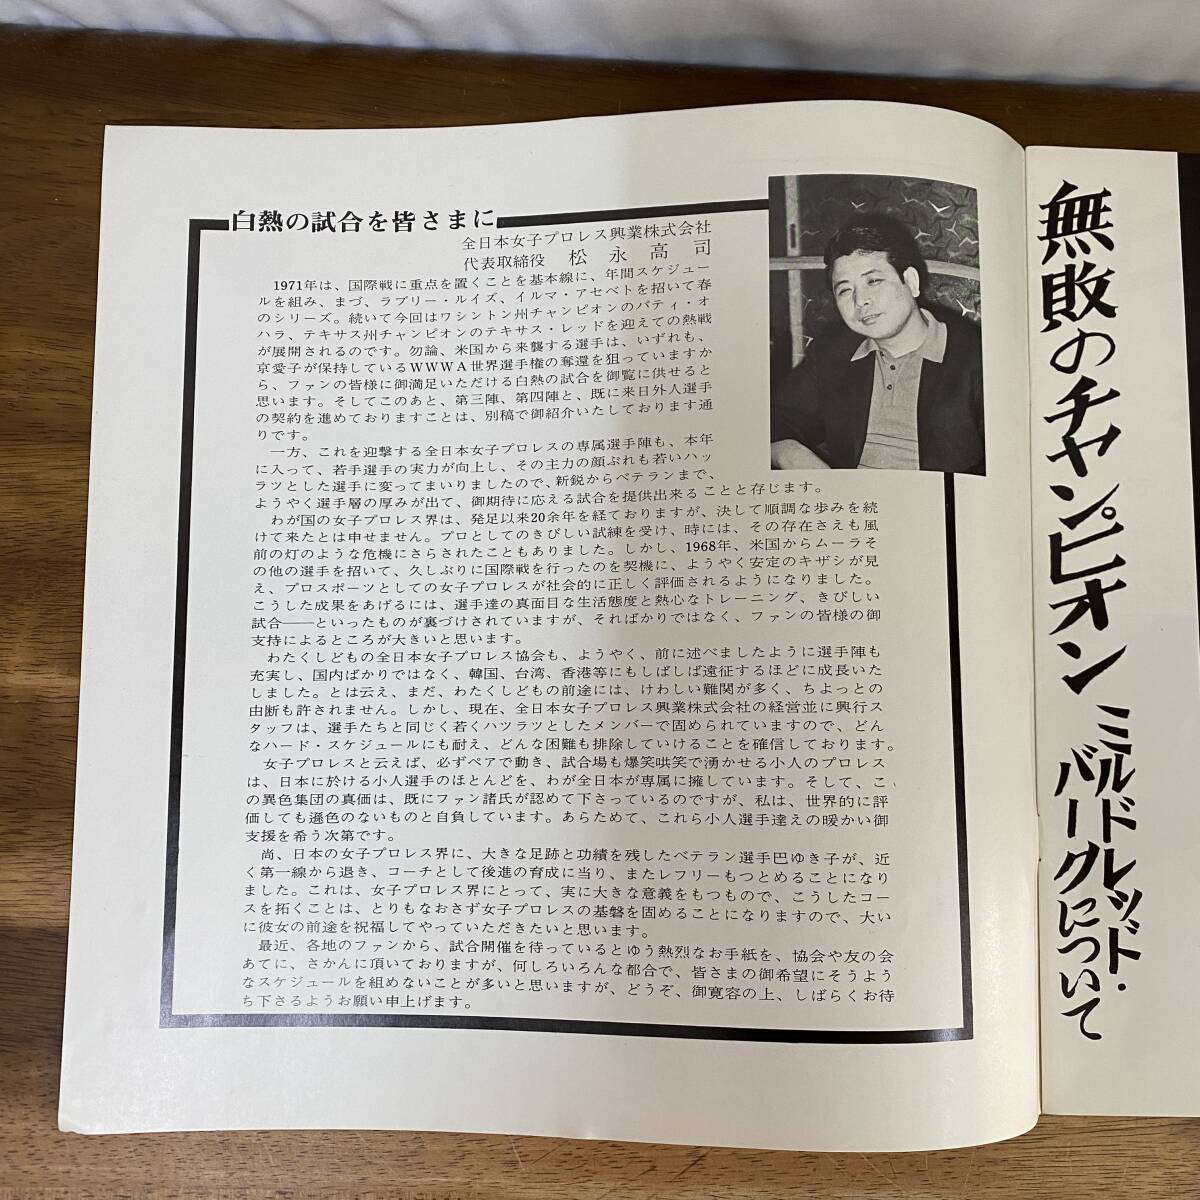 白熱の試合を皆さまに
全日本女子プロレス興業株式会社
代表取締役　松永高司
1971年は、国際戦に重点を置くことを基本線に、年間スケジュー
ルを組み、まづ、ラブリー・ルイズ、イルマ・アセベトを招いて春
のシリーズ。続いて今回はワシントン州チャンピオンのパティ・オ
ハラ、テキサス州チャンピオンのテキサス・レッドを迎えての熱戦
が展開されるのです。勿論、米国から来襲する選手は、いずれも、
京愛子が保持しているWWWA世界選手権の奪還を狙っていますか
ら、ファンの皆様に御満足いただける白熱の試合を御覧に供せると
思います。そしてこのあと、第三陣、第四陣と、既に来日外人選手
の契約を進めておりますことは、別稿で御紹介いたしております通
りです。
一方、これを迎撃する全日本女子プロレスの専属選手陣も、本年
に入って、若手選手の実力が向上し、その主力の顔ぶれも若いハッ
ラツとした選手に変ってまいりましたので、新鋭からベテランまで、
ようやく選手層の厚みが出て、御期待に応える試合を提供出来ることと存じます。
わが国の女子プロレス界は、発足以来20余年を経ておりますが、決して順調な歩みを続
けて来たとは申せません。プロとしてのきびしい試練を受け、時には、その存在さえも風
前の灯のような危機にさらされたこともありました。しかし、1968年、米国からムーラそ
の他の選手を招いて、久しぶりに国際戦を行ったのを契機に、ようやく安定のキザシが見
え、プロスポーツとしての女子プロレスが社会的に正しく評価されるようになりました。
こうした成果をあげるには、選手達の真面目な生活態度と熱心なトレーニング、きびしい
試合――といったものが裏づけされていますが、そればかりではなく、ファンの皆様の御
支持によるところが大きいと思います。
わたくしどもの全日本女子プロレス協会も、ようやく、前に述べましたように選手陣も
充実し、国内ばかりではなく、韓国、台湾、香港等にもしばしば遠征するほどに成長いた
しました。とは云え、まだ、わたくしどもの前途には、けわしい難関が多く、ちよっとの
由断も許されません。しかし、現在、全日本女子プロレス興業株式会社の経営並に興行ス
タッフは、選手たちと同じく若くハツラツとしたメンバーで固められていますので、どん
なハード・スケジュールにも耐え、どんな困難も排除していけることを確信しております。
女子プロレスと云えば、必ずペアで動き、試合場も爆笑哄笑で湧かせる小人のプロレス
は、日本に於ける小人選手のほとんどを、わが全日本が専属に擁しています。そして、こ
の異色集団の真価は、既にファン諸氏が認めて下さっているのですが、私は、世界的に評
価しても遜色のないものと自負しています。あらためて、これら小人選手達えの暖かい御
支援を希う次第です。
尚、日本の女子プロレス界に、大きな足跡と功績を残したベテラン選手巴ゆき子が、近
く第一線から退き、コーチとして後進の育成に当り、またレフリーもつとめることになり
ました。これは、女子プロレス界にとって、実に大きな意義をもつもので、こうしたコー
スを拓くことは、とりもなおさず女子プロレスの基磐を固めることになりますので、大い
に彼女の前途を祝福してやっていただきたいと思います。
最近、各地のファンから、試合開催を待っているとゆう熱烈なお手紙を、協会や友の会
あてに、さかんに頂いておりますが、何しろいろんな都合で、皆さまの御希望にそうよう
なスケジュールを組めないことが多いと思いますが、どうぞ、御寛容の上、しばらくお待
ち下さるようお願い申上げます。
無敗のチャンピオン
ミルドレッド・
バークについて